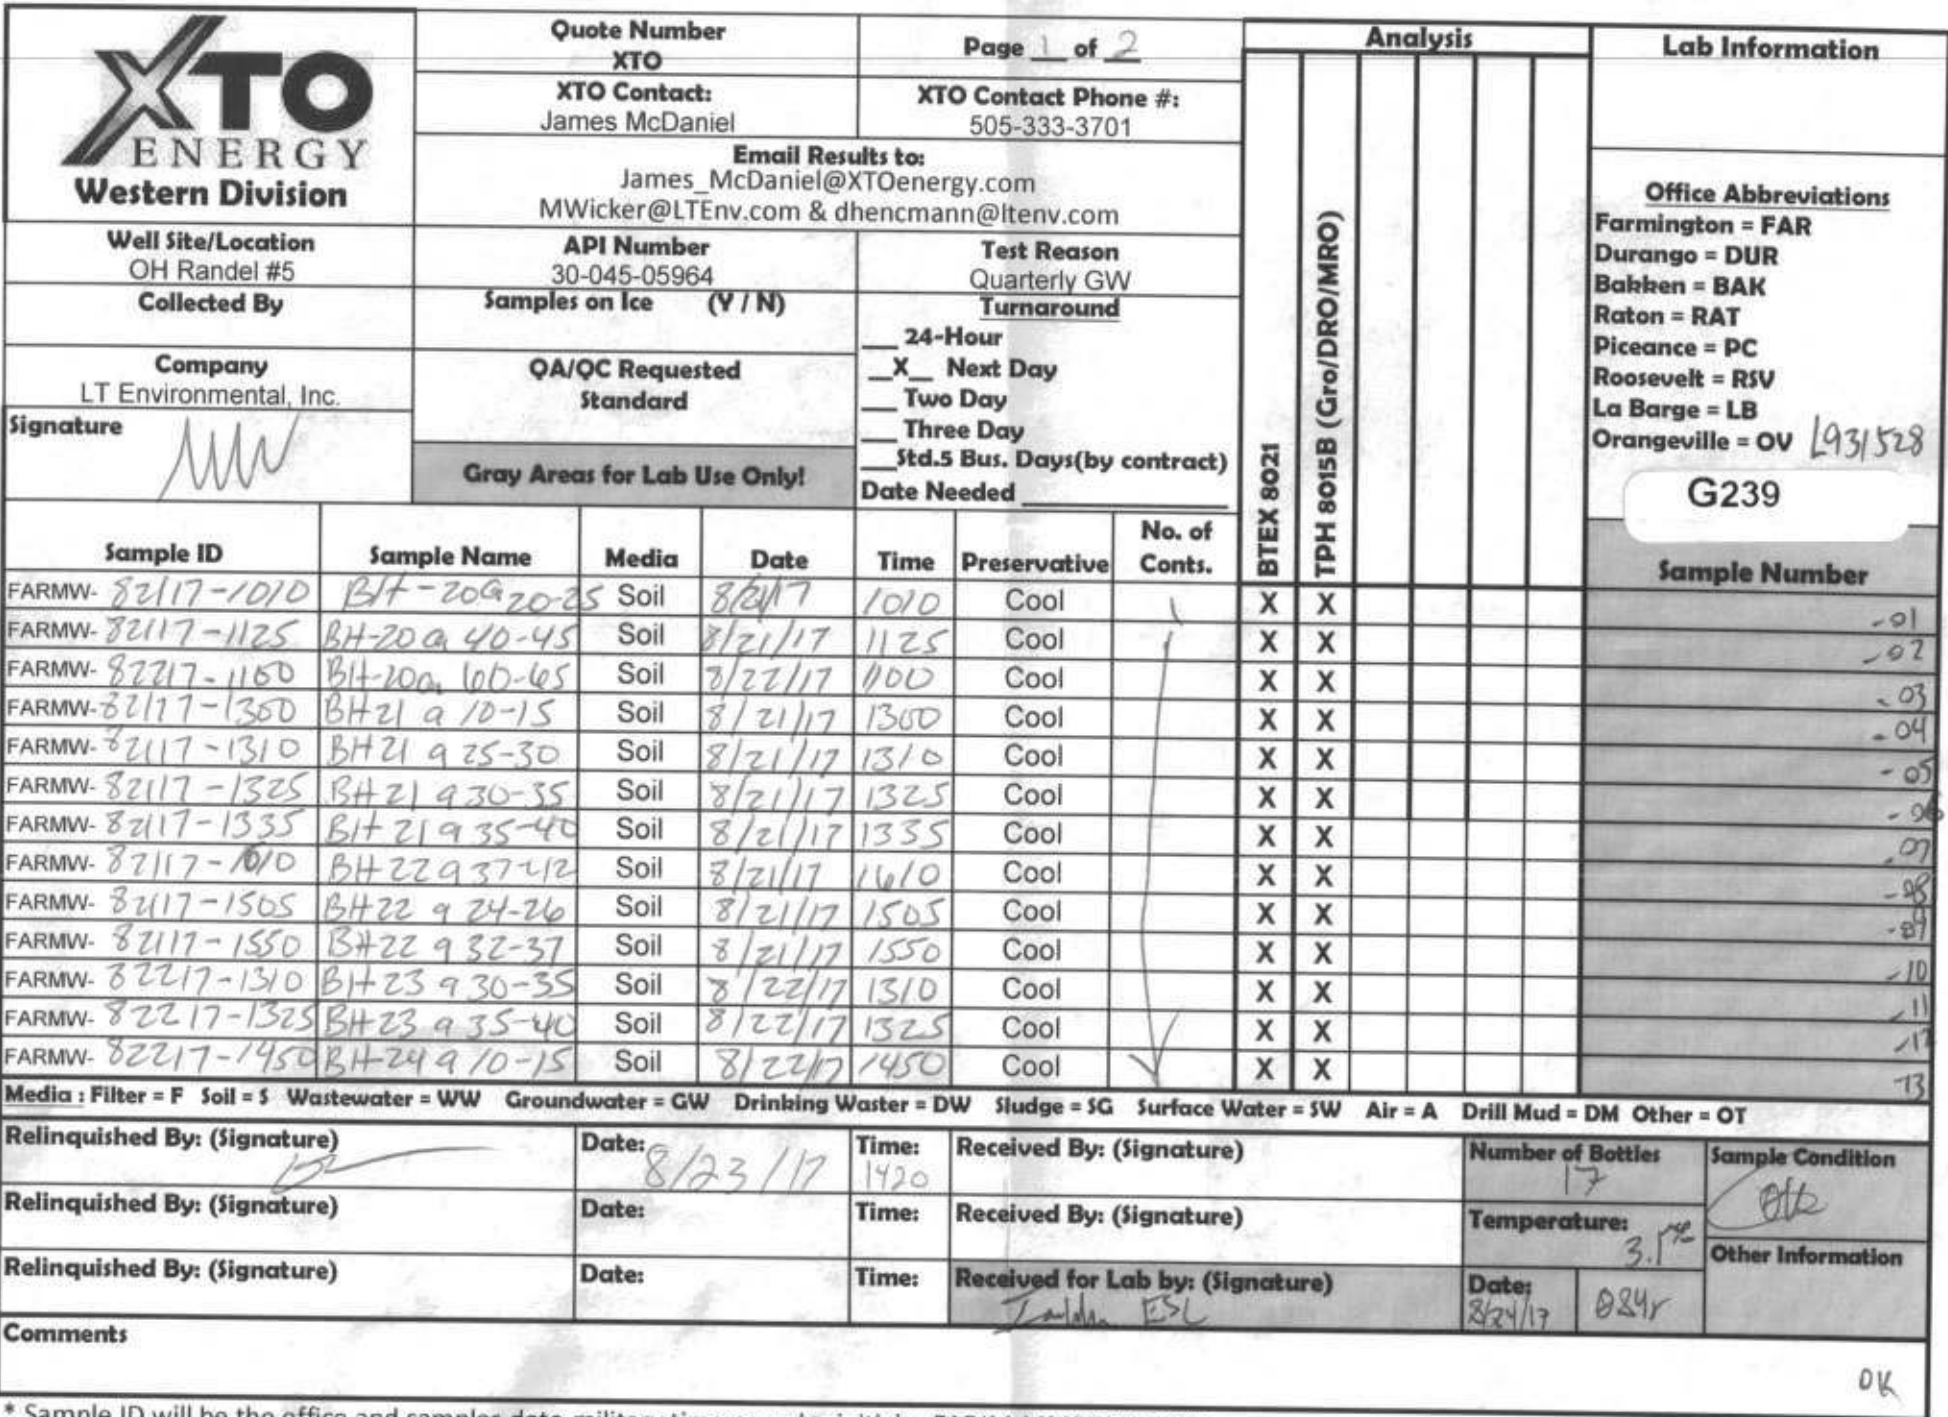 XTO
ENERGY
Western Division
Quote Number
XTO
Page 1 of 2
Analysis
Lab Information
XTO Contact:
James McDaniel
XTO Contact Phone #:
505-333-3701
Email Results to:
James_McDaniel@XTOenergy.com
MWicker@LTEnv.com & dhencmann@ltenv.com
Well Site/Location
OH Randel #5
API Number
30-045-05964
Test Reason
Quarterly GW
Collected By
Samples on Ice (Y / N)
Turnaround
__ 24-Hour
_X_ Next Day
__ Two Day
__ Three Day
__Std.5 Bus. Days(by contract)
Date Needed
Company
LT Environmental, Inc.
QA/QC Requested
Standard
Signature
Gray Areas for Lab Use Only!
Office Abbreviations
Farmington = FAR
Durango = DUR
Bakken = BAK
Raton = RAT
Piceance = PC
Roosevelt = RSV
La Barge = LB
Orangeville = OV L931528
G239
BTEX 8021
TPH 8015B (Gro/DRO/MRO)
Sample ID Sample Name Media Date Time Preservative No. of Conts. Sample Number
FARMW- 82117-1010 BH-20@20-25 Soil 8/21/17 1010 Cool 1 X X -01
FARMW- 82117-1125 BH-20@ 40-45 Soil 8/21/17 1125 Cool X X -02
FARMW- 82217-1100 BH-20@ 60-65 Soil 8/22/17 1100 Cool X X -03
FARMW- 82117-1300 BH21 @ 10-15 Soil 8/21/17 1300 Cool X X -04
FARMW- 82117-1310 BH21 @ 25-30 Soil 8/21/17 1310 Cool X X -05
FARMW- 82117-1325 BH21 @30-35 Soil 8/21/17 1325 Cool X X -06
FARMW- 82117-1335 BH21 @ 35-40 Soil 8/21/17 1335 Cool X X -07
FARMW- 82117-1610 BH22@37-42 Soil 8/21/17 1610 Cool X X -08
FARMW- 82117-1505 BH22 @ 24-26 Soil 8/21/17 1505 Cool X X -09
FARMW- 82117-1550 BH22 @ 32-37 Soil 8/21/17 1550 Cool X X -10
FARMW- 82217-1310 BH23 @ 30-35 Soil 8/22/17 1310 Cool X X -11
FARMW- 82217-1325 BH23 @ 35-40 Soil 8/22/17 1325 Cool X X -12
FARMW- 82217-1450 BH-24 @ 10-15 Soil 8/22/17 1450 Cool X X 13
Media : Filter = F Soil = S Wastewater = WW Groundwater = GW Drinking Waster = DW Sludge = SG Surface Water = SW Air = A Drill Mud = DM Other = OT
Relinquished By: (Signature) Date: 8/23/17 Time: 1420 Received By: (Signature) Number of Bottles 17 Sample Condition
Relinquished By: (Signature) Date: Time: Received By: (Signature) Temperature: 3.1 Other Information
Relinquished By: (Signature) Date: Time: Received for Lab by: (Signature) ESC Date: 8/24/17
Comments
OK